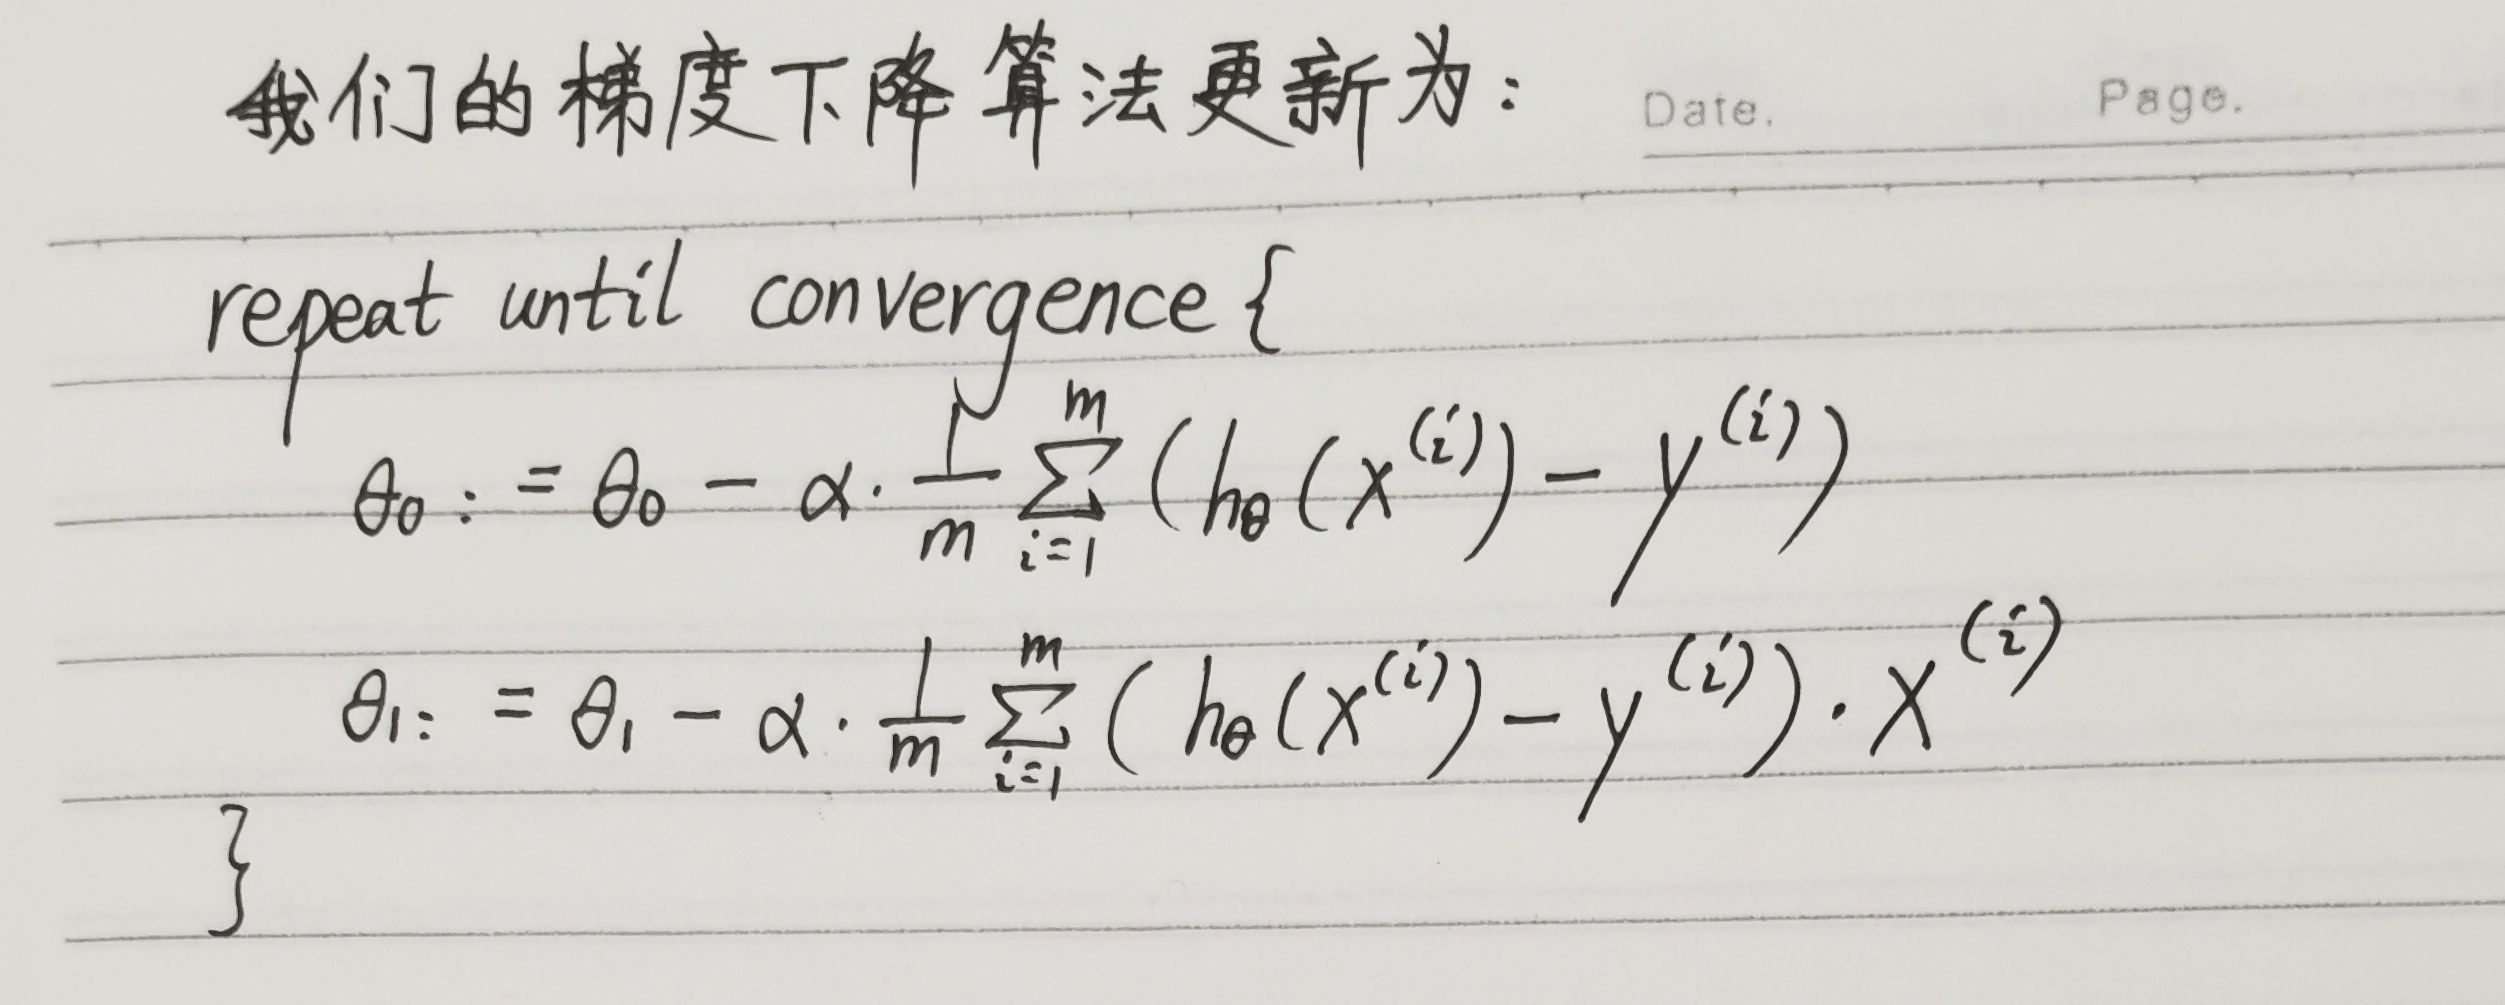 我们的梯度下降算法更新为：
Date. Page.
repeat until convergence {
θ₀ := θ₀ - α · \frac{1}{m} \sum_{i=1}^{m} (h_θ(x^{(i)}) - y^{(i)})
θ₁ := θ₁ - α · \frac{1}{m} \sum_{i=1}^{m} (h_θ(x^{(i)}) - y^{(i)}) · x^{(i)}
}